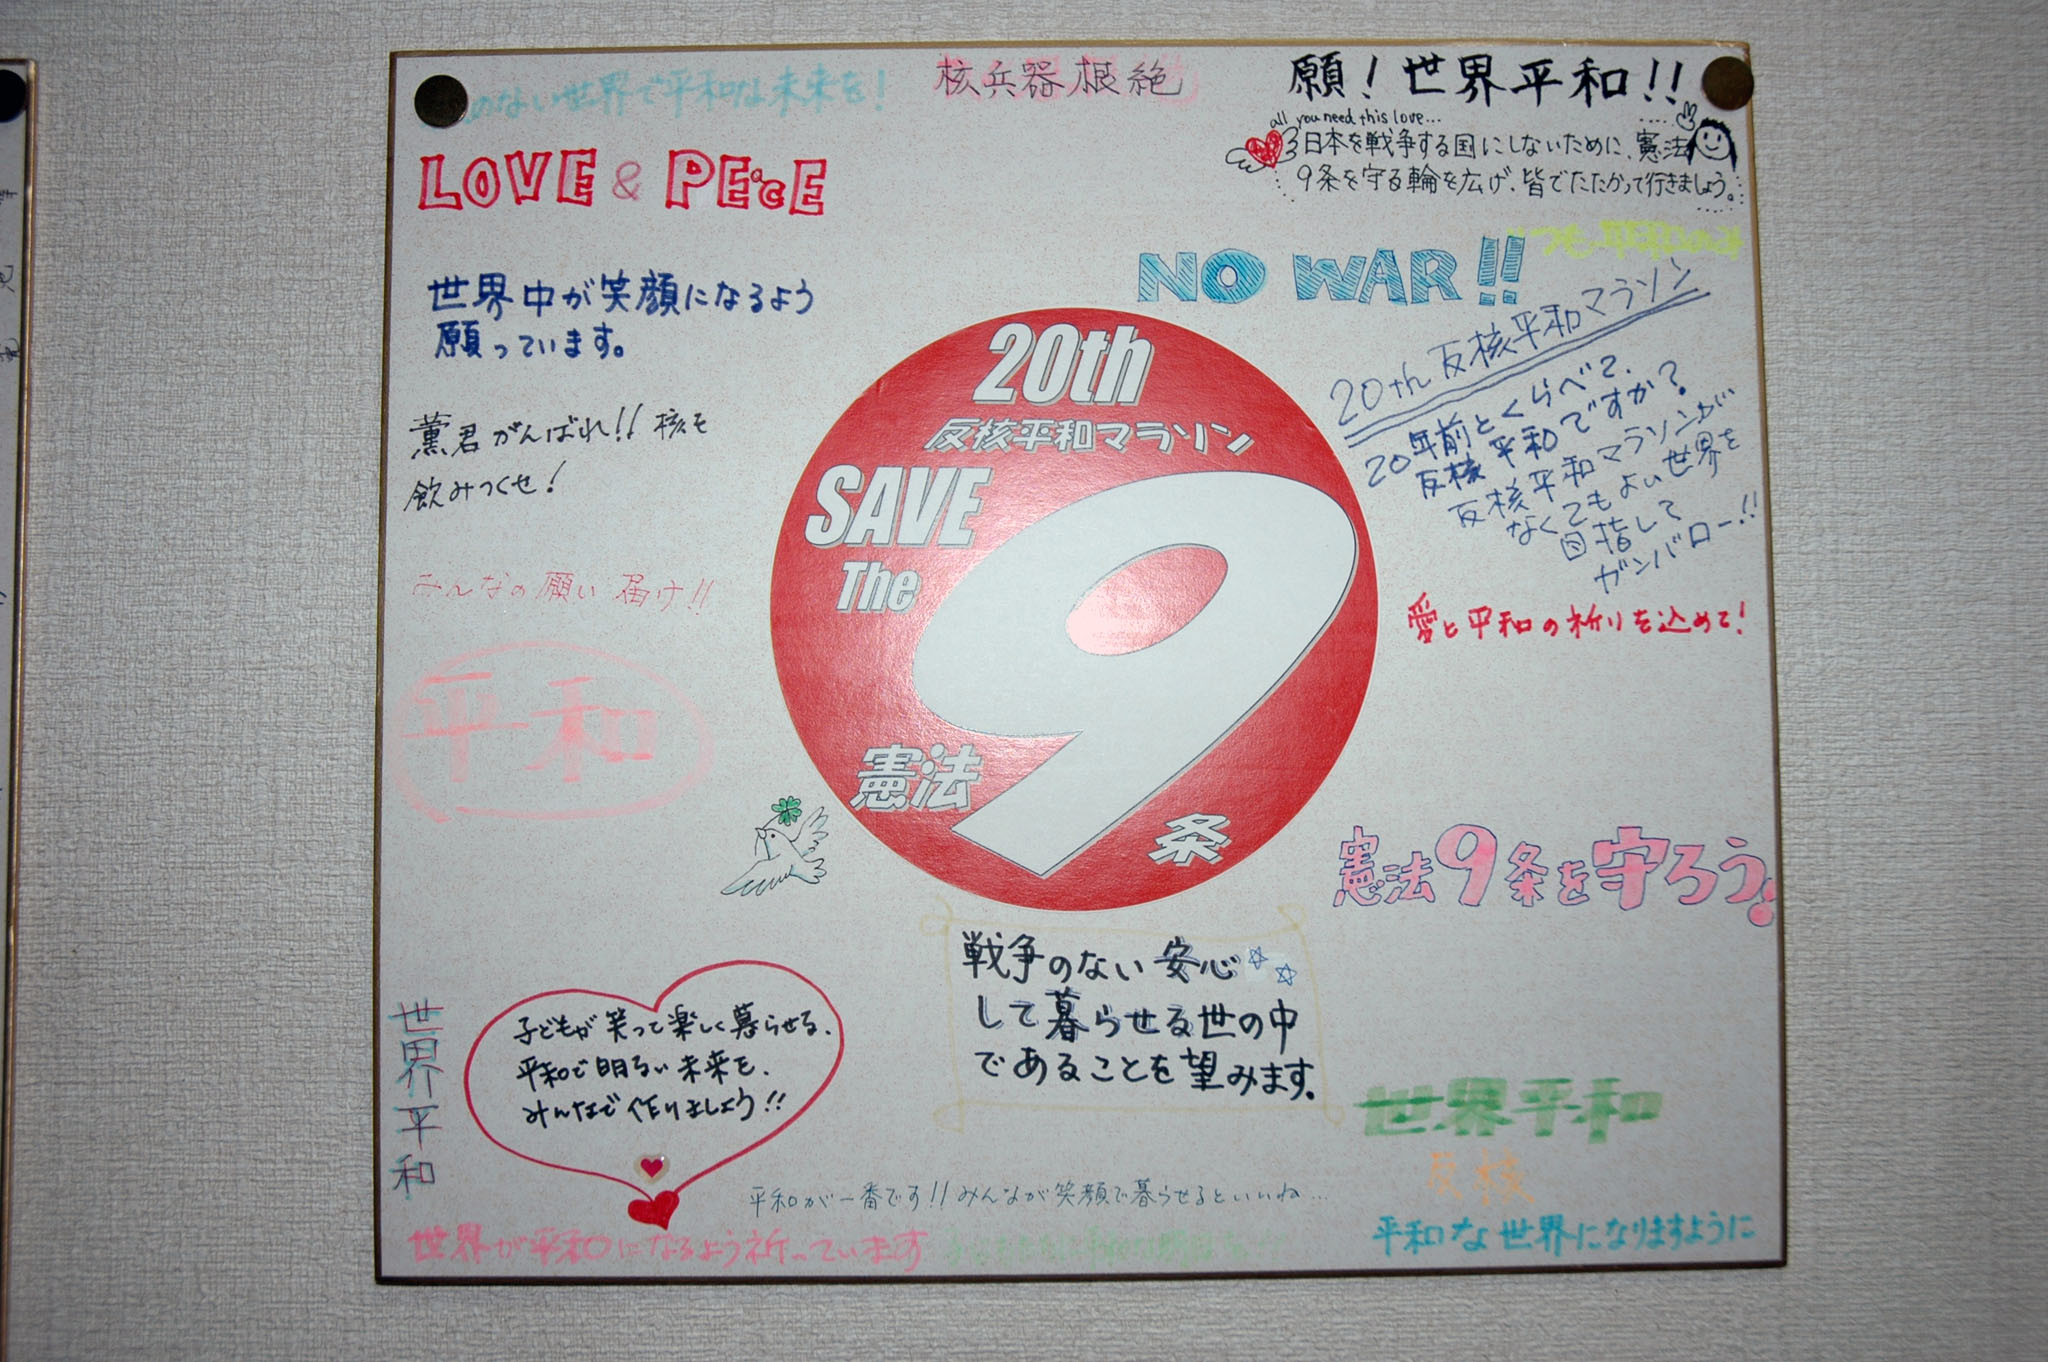 のない世界で平和な未来を!
核兵器根絶
願!世界平和!!
all you need this love...
日本を戦争する国にしないために、憲法
9条を守る輪を広げ、皆でたたかって行きましょう。
LOVE & PEaCE
NO WAR!!
世界中が笑顔になるよう
願っています。
20th 反核平和マラソン
20年前とくらべて、
反核平和ですか?
反核平和マラソンが
なくてもよい世界を
目指して
ガンバロー!!
薫君がんばれ!! 核も
飲みつくせ!
みんなの願い 届け!!
平和
20th
反核平和マラソン
SAVE
The
9
憲法
条
愛と平和の祈りを込めて!
憲法9条を守ろう!
戦争のない安心
して暮らせる世の中
であることを望みます。
世界平和
子どもが笑って楽しく暮らせる、
平和で明るい未来を、
みんなで作りましょう!!
世界平和
反核
平和が一番です!!みんなが笑顔で暮らせるといいね...
平和な世界になりますように
世界が平和になるよう祈っています